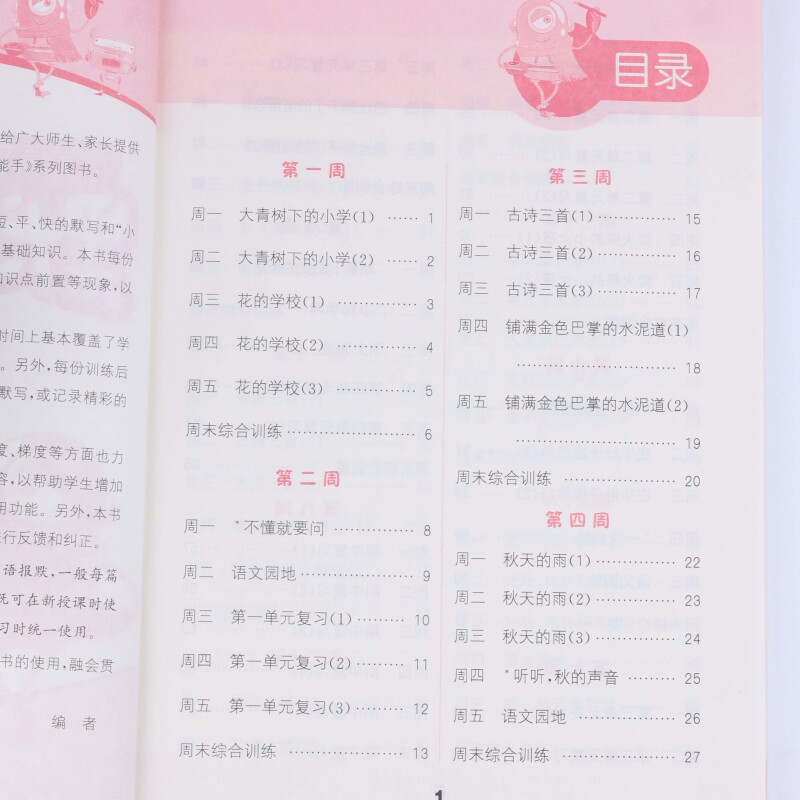 给广大师生、家长提供
能手》系列图书。
短、平、快的默写和“小
基础知识。本书每份
知识点前置等现象，以
时间上基本覆盖了学
。另外，每份训练后
默写，或记录精彩的
度、梯度等方面也力
容，以帮助学生增加
用功能。另外，本书
进行反馈和纠正。
语报默，一般每篇
既可在新授课时使
习时统一使用。
书的使用，融会贯
编 者
目录
第一周
周一 大青树下的小学(1) …… 1
周二 大青树下的小学(2) …… 2
周三 花的学校(1) ………… 3
周四 花的学校(2) ………… 4
周五 花的学校(3) ………… 5
周末综合训练 ……………… 6
第二周
周一 *不懂就要问 ………… 8
周二 语文园地 …………… 9
周三 第一单元复习(1) …… 10
周四 第一单元复习(2) …… 11
周五 第一单元复习(3) …… 12
周末综合训练 ……………… 13
第三周
周一 古诗三首(1) ………… 15
周二 古诗三首(2) ………… 16
周三 古诗三首(3) ………… 17
周四 铺满金色巴掌的水泥道(1)
……………………… 18
周五 铺满金色巴掌的水泥道(2)
……………………… 19
周末综合训练 ……………… 20
第四周
周一 秋天的雨(1) ………… 22
周二 秋天的雨(2) ………… 23
周三 秋天的雨(3) ………… 24
周四 *听听,秋的声音 …… 25
周五 语文园地 …………… 26
周末综合训练 ……………… 27
1